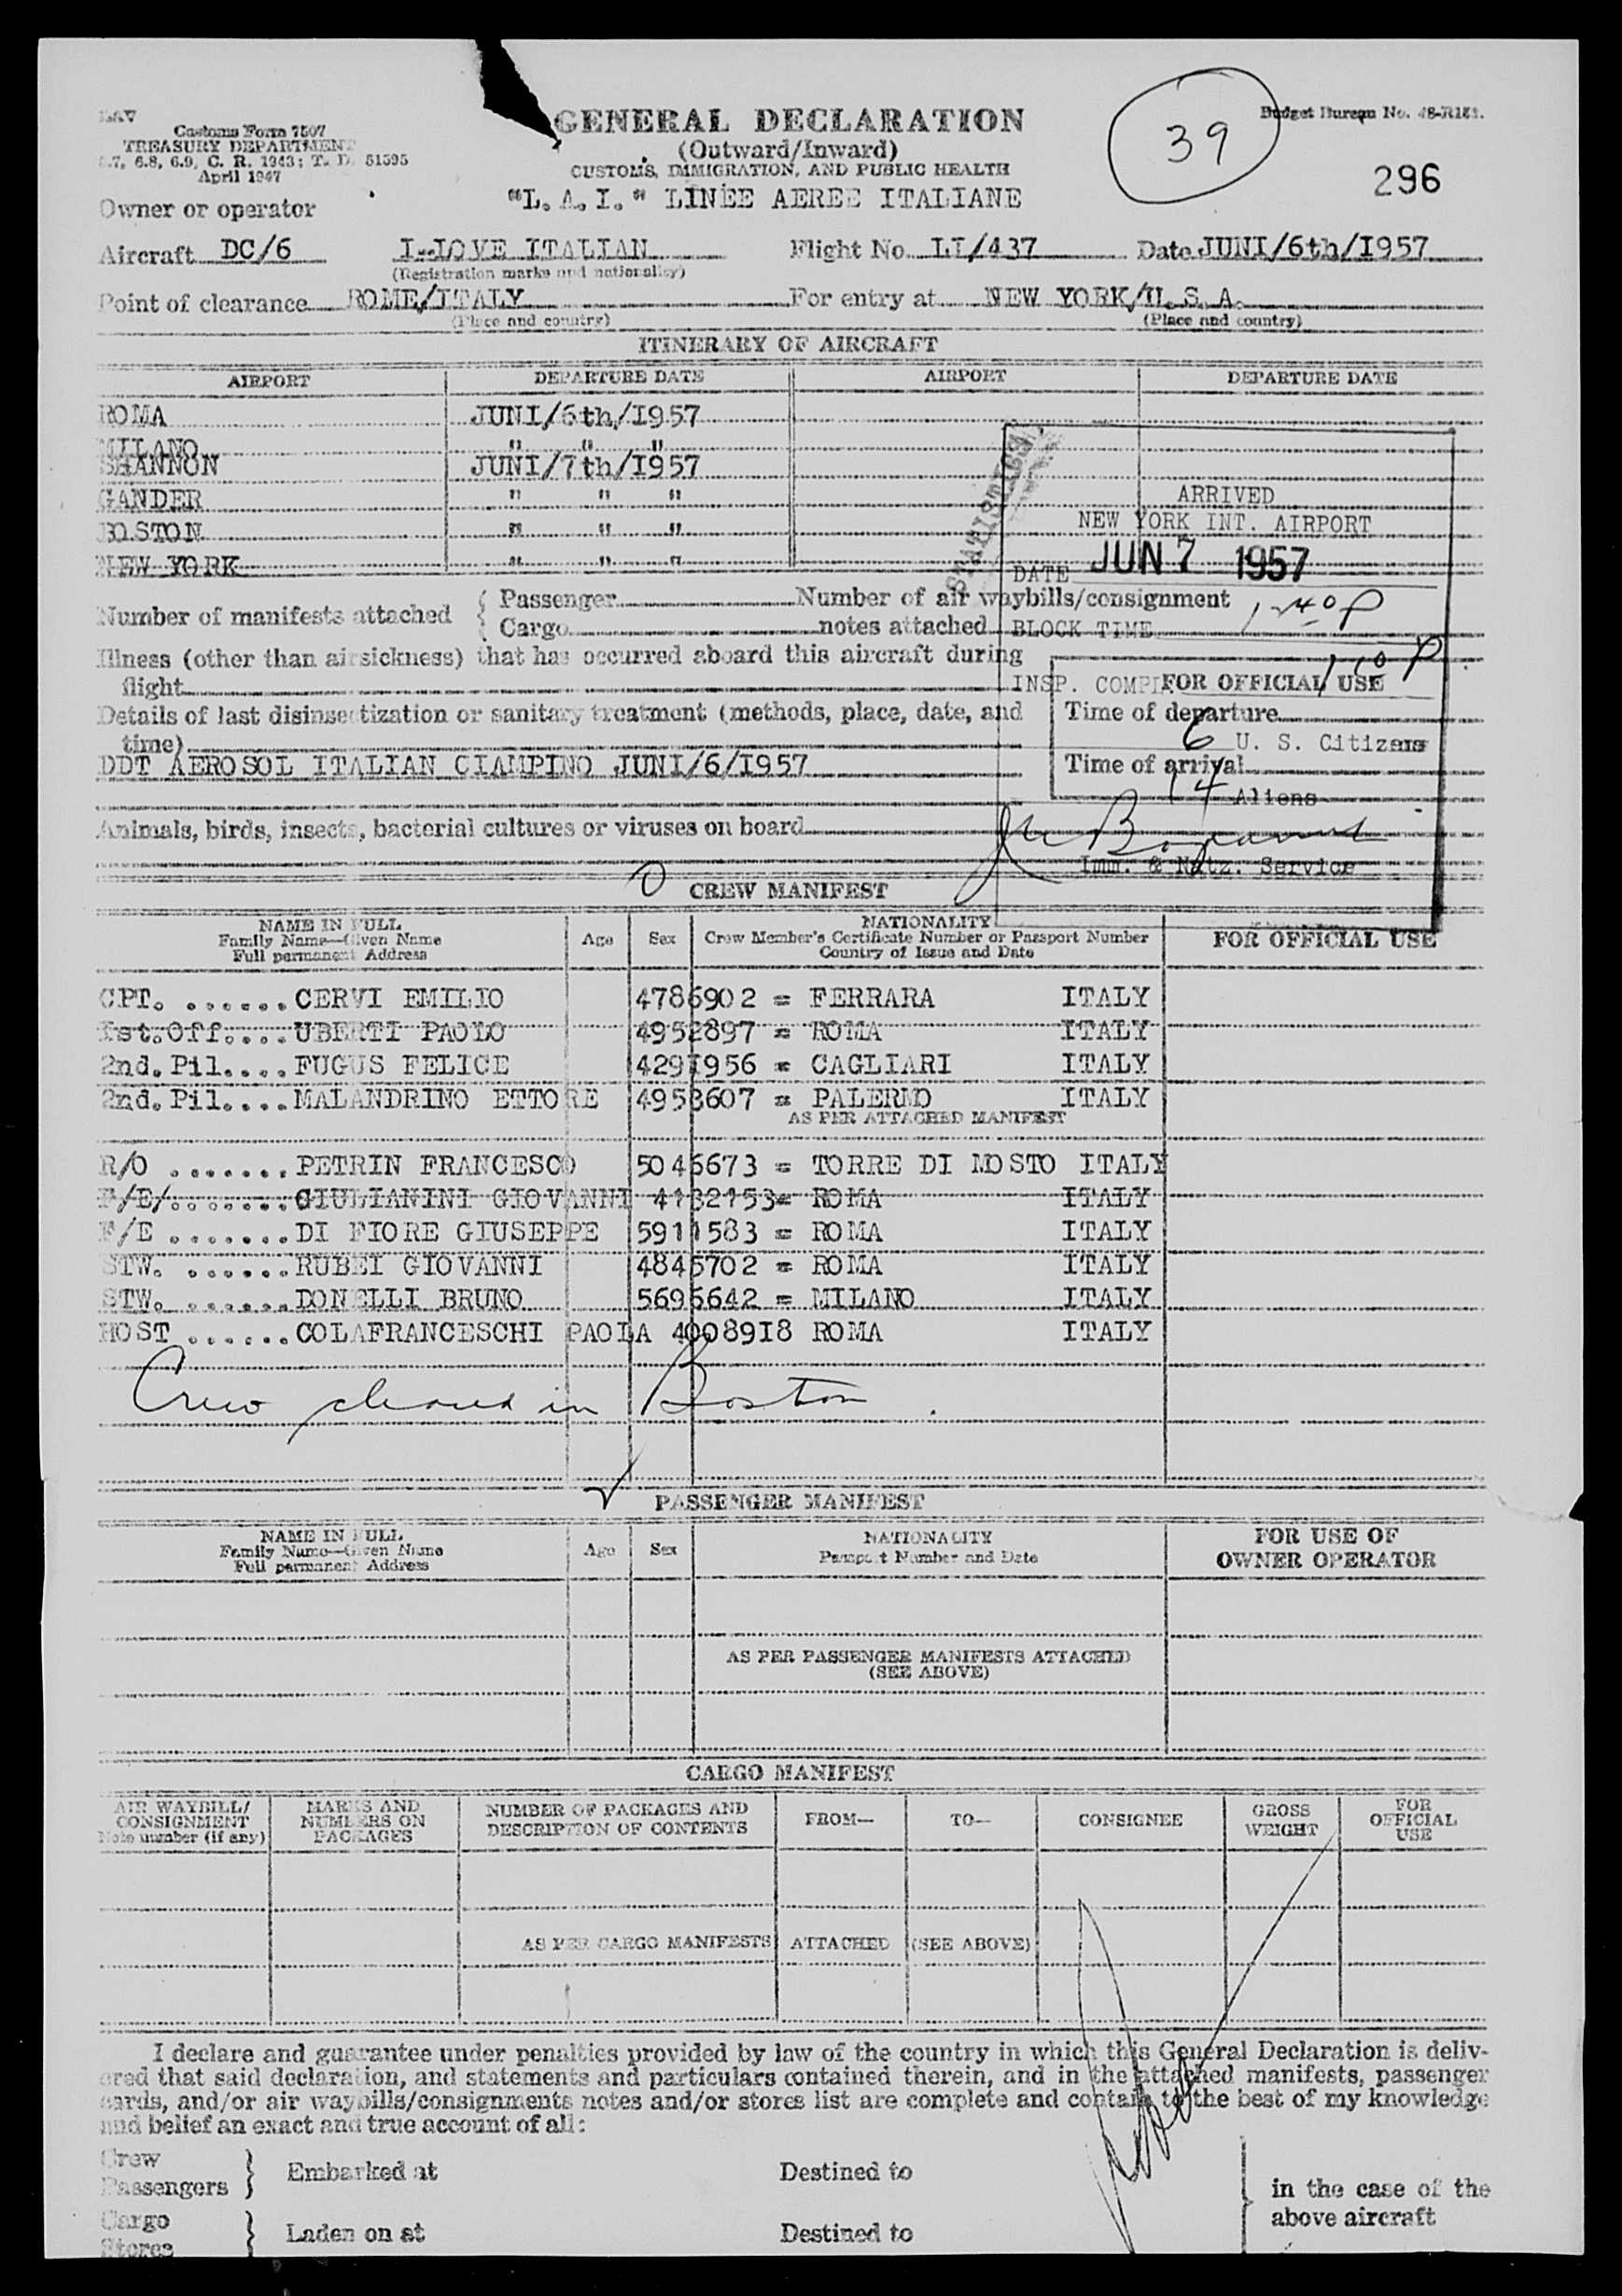 Customs Form 7507
GENERAL DECLARATION
Budget Bureau No. 48-R181.
TREASURY DEPARTMENT
(Outward/Inward)
39
6.8, 6.9, C. R. 1943; T. D. 51595
April 1947
CUSTOMS, IMMIGRATION, AND PUBLIC HEALTH
296
Owner or operator "L. A. I." LINEE AEREE ITALIANE
Aircraft DC/6 I-LOVE ITALIAN Flight No. LI/437 Date JUNI/6th/I957
(Registration marks and nationality)
Point of clearance ROME/ITALY For entry at NEW YORK/U.S.A.
(Place and country) (Place and country)
ITINERARY OF AIRCRAFT
AIRPORT DEPARTURE DATE AIRPORT DEPARTURE DATE
ROMA JUNI/6th/I957
MILANO " " "
SHANNON JUNI/7th/I957
GANDER " " "
BOSTON " " "
NEW YORK " " "
STATISTICS
ARRIVED
NEW YORK INT. AIRPORT
DATE JUN 7 1957
Number of manifests attached { Passenger Number of air waybills/consignment
Cargo notes attached
BLOCK TIME 1-40P
Illness (other than airsickness) that has occurred aboard this aircraft during
flight
INSP. FOR OFFICIAL USE
Details of last disinsectization or sanitary treatment (methods, place, date, and
time)
Time of departure
6 U. S. Citizens
DDT AEROSOL ITALIAN CIAMPINO JUNI/6/I957
Time of arrival
14 Aliens
Animals, birds, insects, bacterial cultures or viruses on board
Imm. & Natz. Service
CREW MANIFEST
NAME IN FULL
Family Name—Given Name
Full permanent Address
Age
Sex
NATIONALITY
Crew Member's Certificate Number or Passport Number
Country of Issue and Date
FOR OFFICIAL USE
CPT. ......CERVI EMILIO 4786902 = FERRARA ITALY
Ist.Off....UBERTI PAOLO 4952897 = ROMA ITALY
2nd.Pil....FUGUS FELICE 429I956 = CAGLIARI ITALY
2nd.Pil....MALANDRINO ETTORE 4953607 = PALERMO ITALY
AS PER ATTACHED MANIFEST
R/O .......PETRIN FRANCESCO 5046673 = TORRE DI MOSTO ITALY
F/E/.......GIULIANINI GIOVANNI 4132153= ROMA ITALY
F/E .......DI FIORE GIUSEPPE 5911583 = ROMA ITALY
STW. ......RUBEI GIOVANNI 4845702 = ROMA ITALY
STW. ......DONELLI BRUNO 5695642 = MILANO ITALY
HOST ......COLAFRANCESCHI PAOLA 40089I8 ROMA ITALY
Crew cleared in Boston
PASSENGER MANIFEST
NAME IN FULL
Family Name—Given Name
Full permanent Address
Age
Sex
NATIONALITY
Passport Number and Date
FOR USE OF
OWNER OPERATOR
AS PER PASSENGER MANIFESTS ATTACHED
(SEE ABOVE)
CARGO MANIFEST
AIR WAYBILL/
CONSIGNMENT
Note number (if any)
MARKS AND
NUMBERS ON
PACKAGES
NUMBER OF PACKAGES AND
DESCRIPTION OF CONTENTS
FROM—
TO—
CONSIGNEE
GROSS
WEIGHT
FOR
OFFICIAL
USE
AS PER CARGO MANIFESTS ATTACHED (SEE ABOVE)
I declare and guarantee under penalties provided by law of the country in which this General Declaration is deliv-
ered that said declaration, and statements and particulars contained therein, and in the attached manifests, passenger
cards, and/or air waybills/consignments notes and/or stores list are complete and contain to the best of my knowledge
and belief an exact and true account of all:
Crew
Passengers } Embarked at Destined to
in the case of the
above aircraft
Cargo
Stores } Laden on at Destined to